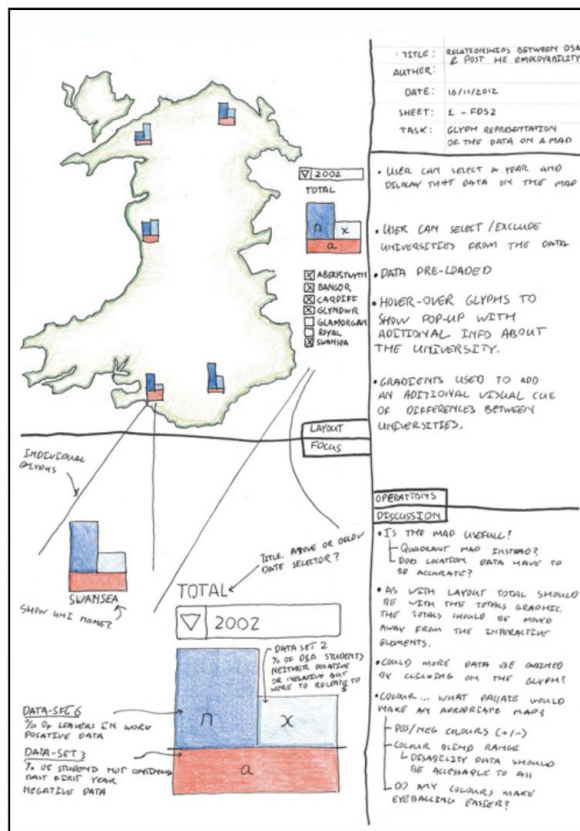 TITLE: RELATIONSHIPS BETWEEN DSA
& POST HE EMPLOYABILITY
AUTHOR:
DATE: 10/11/2012
SHEET: 1 - FDS2
TASK: GLYPH REPRESENTATION
OF THE DATA ON A MAP
2002
TOTAL
n
x
a
ABERISTWYTH
BANGOR
CARDIFF
GLYNDWR
GLAMORGAN
ROYAL
SWANSEA
• USER CAN SELECT A YEAR AND
DISPLAY THAT DATA ON THE MAP
• USER CAN SELECT / EXCLUDE
UNIVERSITIES FROM THE DATA
• DATA PRE-LOADED
• HOVER-OVER GLYPHS TO
SHOW POP-UP WITH
ADITIONAL INFO ABOUT
THE UNIVERSITY.
• GRADIENTS USED TO ADD
AN ADITIONAL VISUAL CUE
OF DIFFERENCES BETWEEN
UNIVERSITIES.
LAYOUT
FOCUS
OPERATIONS
DISCUSSION
INDIVIDUAL
GLYPHS
SWANSEA
SHOW UNI NAME?
TITLE ABOVE OR BELOW
DATE SELECTOR?
TOTAL
2002
DATA SET 2
% OF DSA STUDENTS
NEITHER POSITIVE
OR NEGATIVE BUT
TO
n
x
a
DATA-SET 6
% OF LEAVERS IN WORK
POSITIVE DATA
DATA-SET 3
% OF STUDENT NOT CONTINUING
PAST FIRST YEAR
NEGATIVE DATA
• IS THE MAP USEFULL?
QUADRANT MAP INSTEAD?
DOES LOCATION DATA HAVE TO
BE ACCURATE?
• AS WITH LAYOUT TOTAL SHOULD
BE WITH THE TOTALS GRAPHIC.
THE TOTALS SHOULD BE MOVED
AWAY FROM THE INTERACTIVE
ELEMENTS.
• COULD MORE DATA BE GAINED
BY CLICKING ON THE GLYPH?
• COLOUR... WHAT PALLATE WOULD
MAKE AN APROPRIATE MAP?
POS/NEG COLOURS (+/-)
COLOUR BLIND RANGE
DISABILITY DATA SHOULD
BE ACCESSABLE TO ALL
DO ANY COLOURS MAKE
EYEBALLING EASIER?